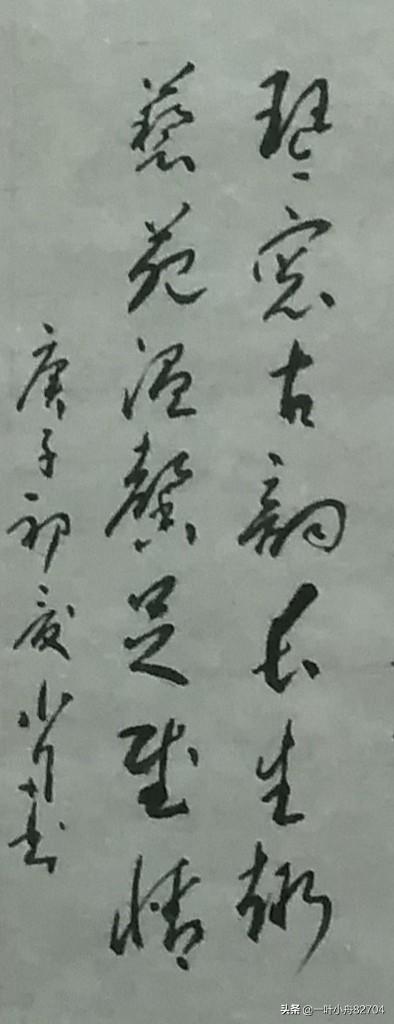 琴窓古韵长生
藝苑温馨足情
庚子初夏小舟书
头条 @一叶小舟82704